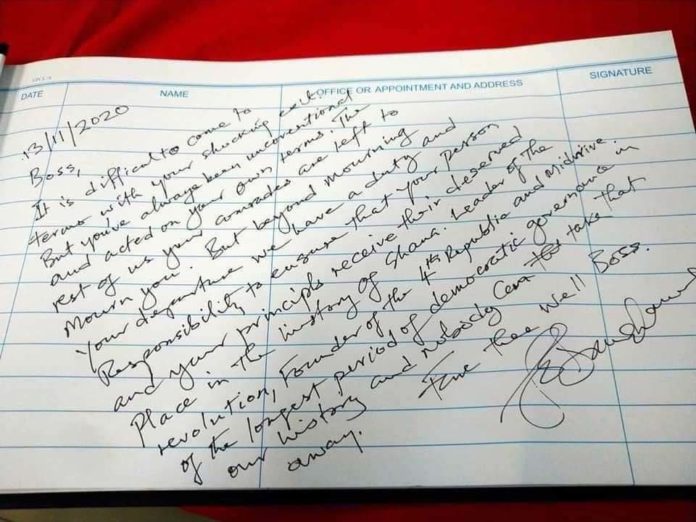 DATE NAME OFFICE OR APPOINTMENT AND ADDRESS SIGNATURE
13/11/2020
Boss,
It is difficult to come to
terms with your shocking exit.
But you've always been unconventional
and acted on your own terms. The
rest of us your comrades are left to
Mourn you. But beyond mourning
Your departure we have a duty and
Responsibility to ensure that your person
and your principles receive their deserved
Place in the history of Ghana. Leader of the
revolution, Founder of the 4th Republic and Midwive
of the longest period of democratic governance in
our history and nobody can take that
away.
Fare thee well Boss.